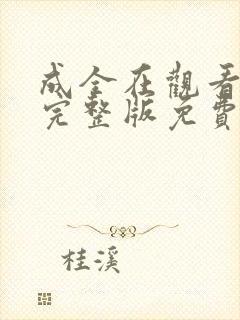 成全在觀看
完整版免費
桂溪